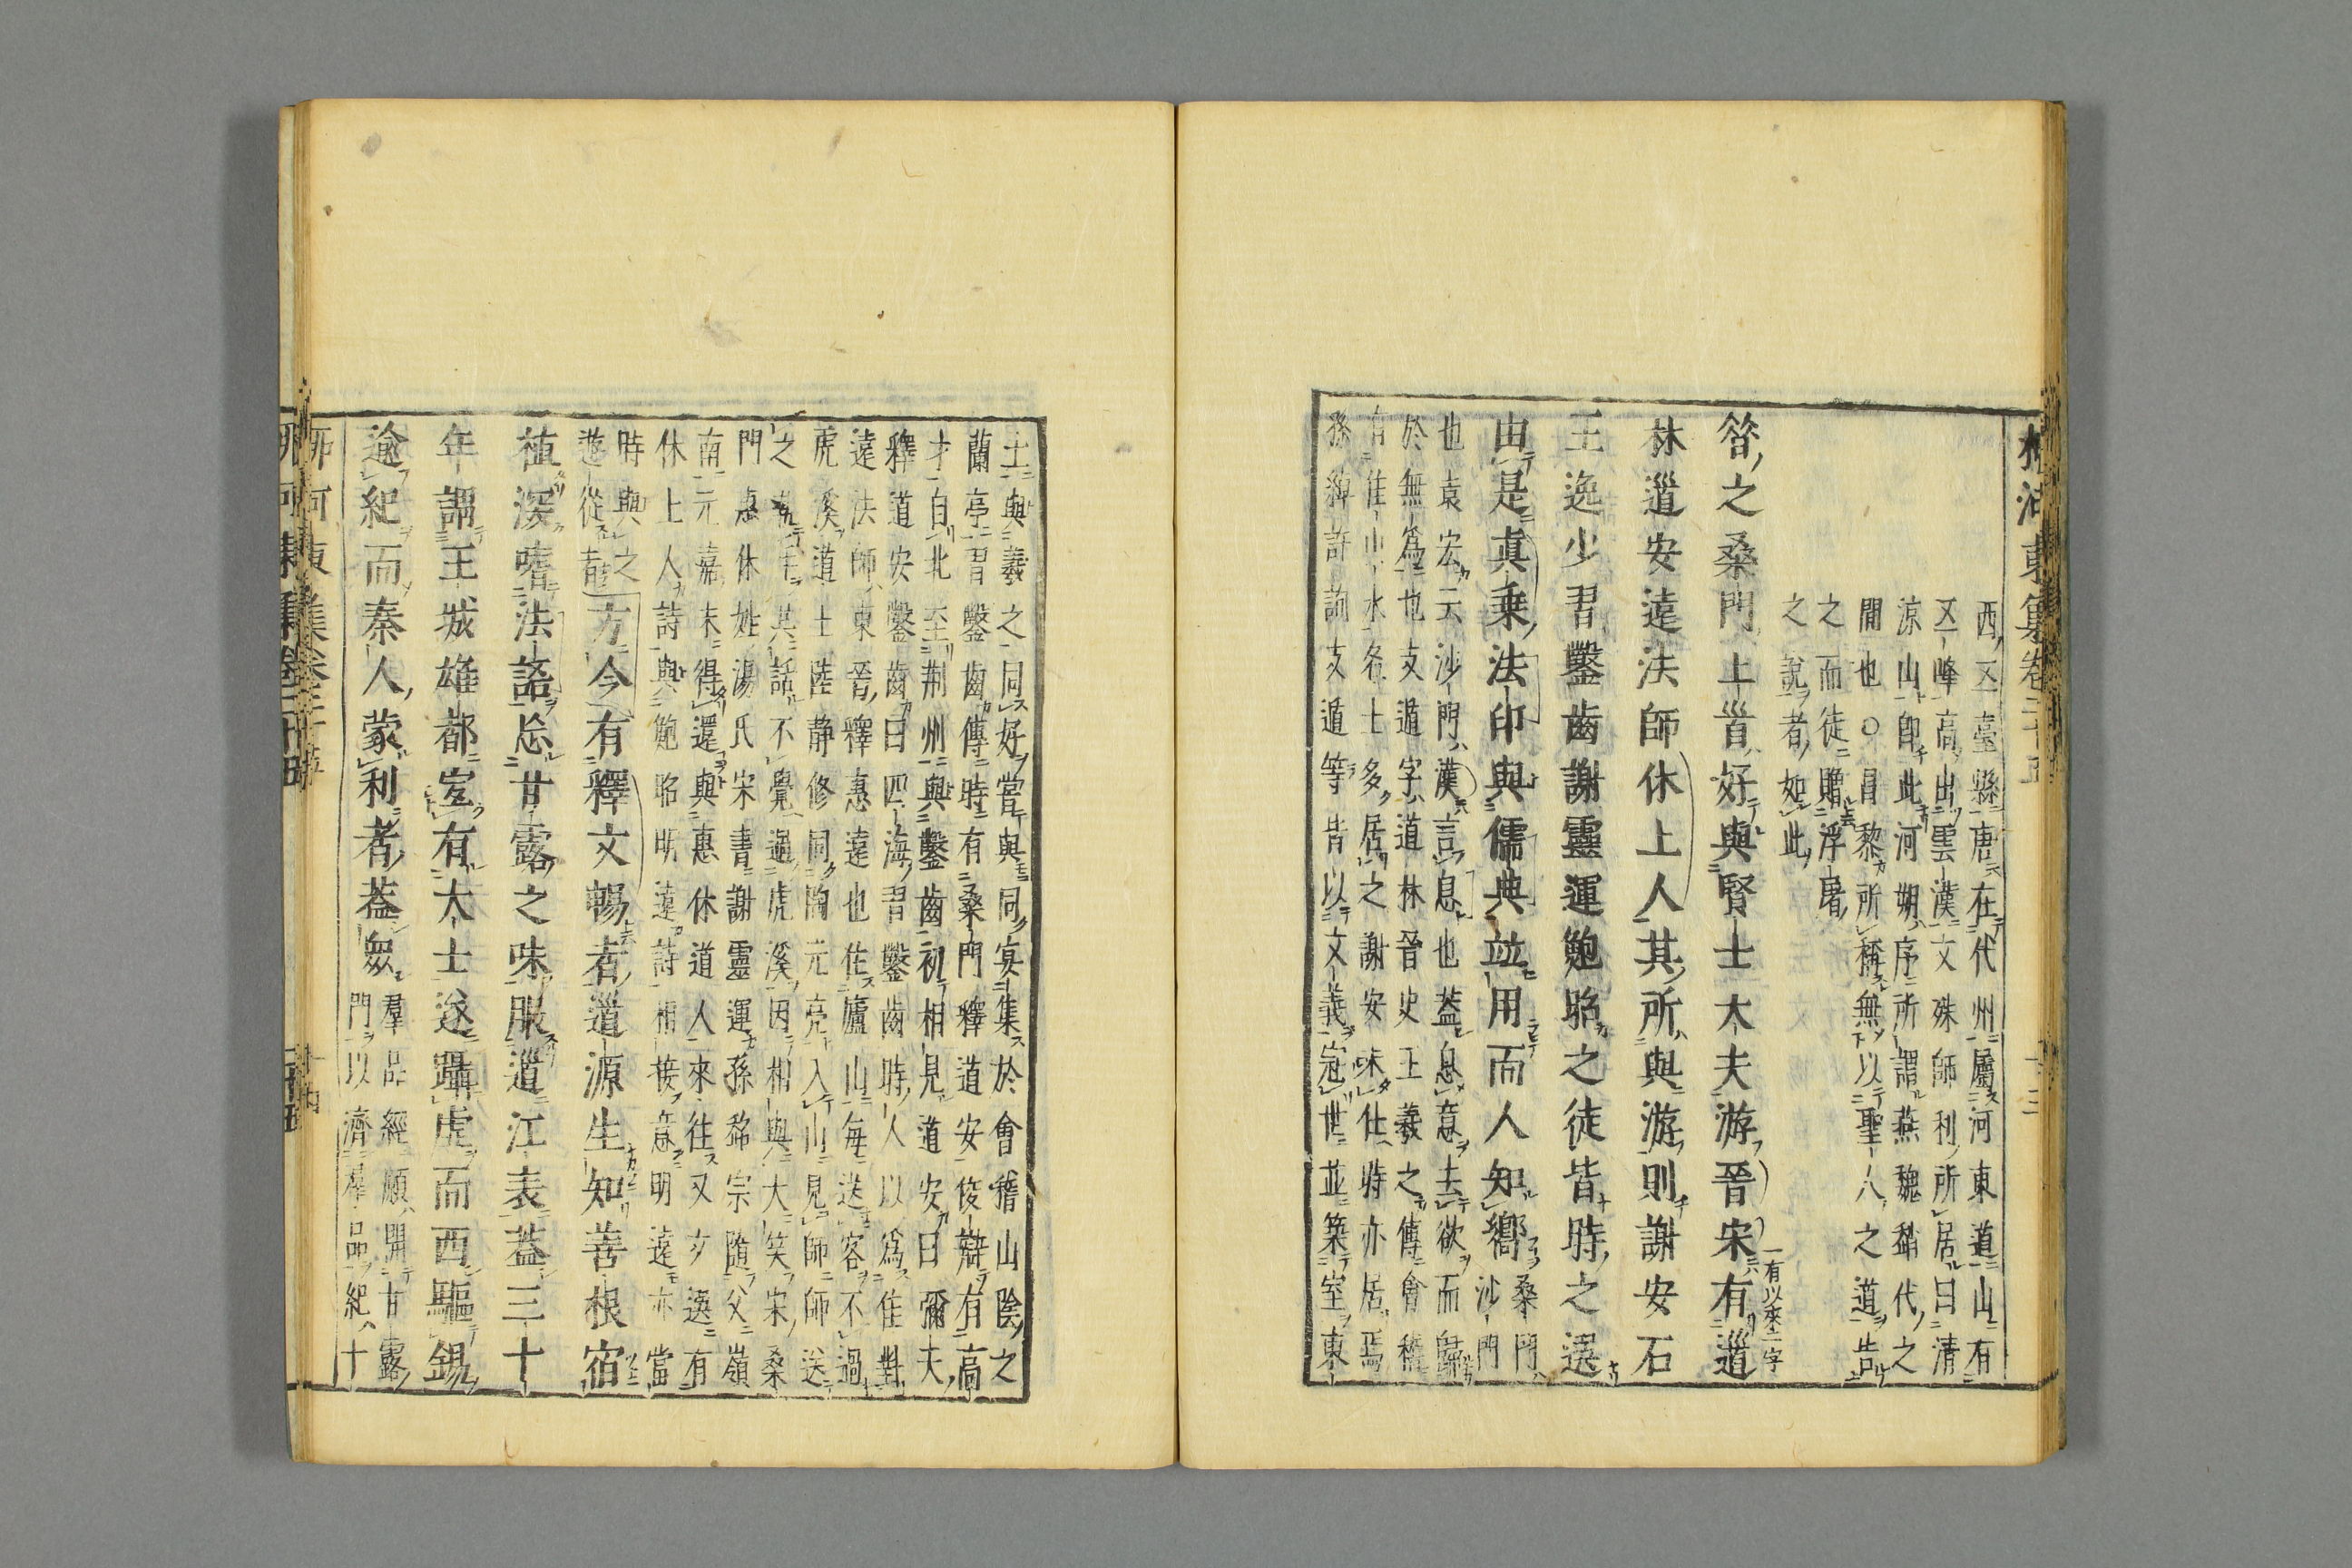 柳河東集卷二十五
西五臺縣唐在代州屬河東道山有
五峰高出雲漢文殊師利所居曰清
涼山即此河朔序所謂燕魏趙代之
間也○昌黎所稱無以聖人之道告
之而徒贈浮屠
之說者如此
昔之桑門上首好與賢士大夫游晉宋有道
一有以來二字
林道安遠法師休上人其所與游則謝安石
王逸少習鑿齒謝靈運鮑照之徒皆時之選
由是眞乗法印與儒典竝用而人知嚮
桑門沙門
也袁宏云沙門漢言息也蓋息意去欲而歸
於無爲也支遁字道林晉史王羲之傳會稽
有佳山水名士多居之謝安未仕時亦居焉
孫綽許詢支遁等皆以文義冠世並築室東
土與羲之同好嘗與同宴集於會稽山陰之
蘭亭習鑿齒傳時有桑門釋道安俊辯有高
才自北至荆州與鑿齒初相見道安曰彌天
釋道安鑿齒曰四海習鑿齒時人以爲佳對
遠法師東晉釋惠遠也住廬山每送客不過
虎溪道士陸静修同陶元亮入山見師師送
之其話不覺過虎溪因相與大笑宋桑
門惠休姓湯氏宋書謝靈運孫超宗隨父嶺
南元嘉末得還與惠休道人來往又文選有
休上人詩與鮑昭明遠詩相接意明遠亦當
時與之
遊從者
方今有釋文暢者道源生知善根宿
植深嗜法語忘甘露之味服道江表蓋三十
年謂王城雄都宜有大士遂躡虎而西驅錫
逾紀而秦人蒙利者蓋衆
羣品經願開甘露
門以濟羣品紀十
柳河東集卷二十五
十四